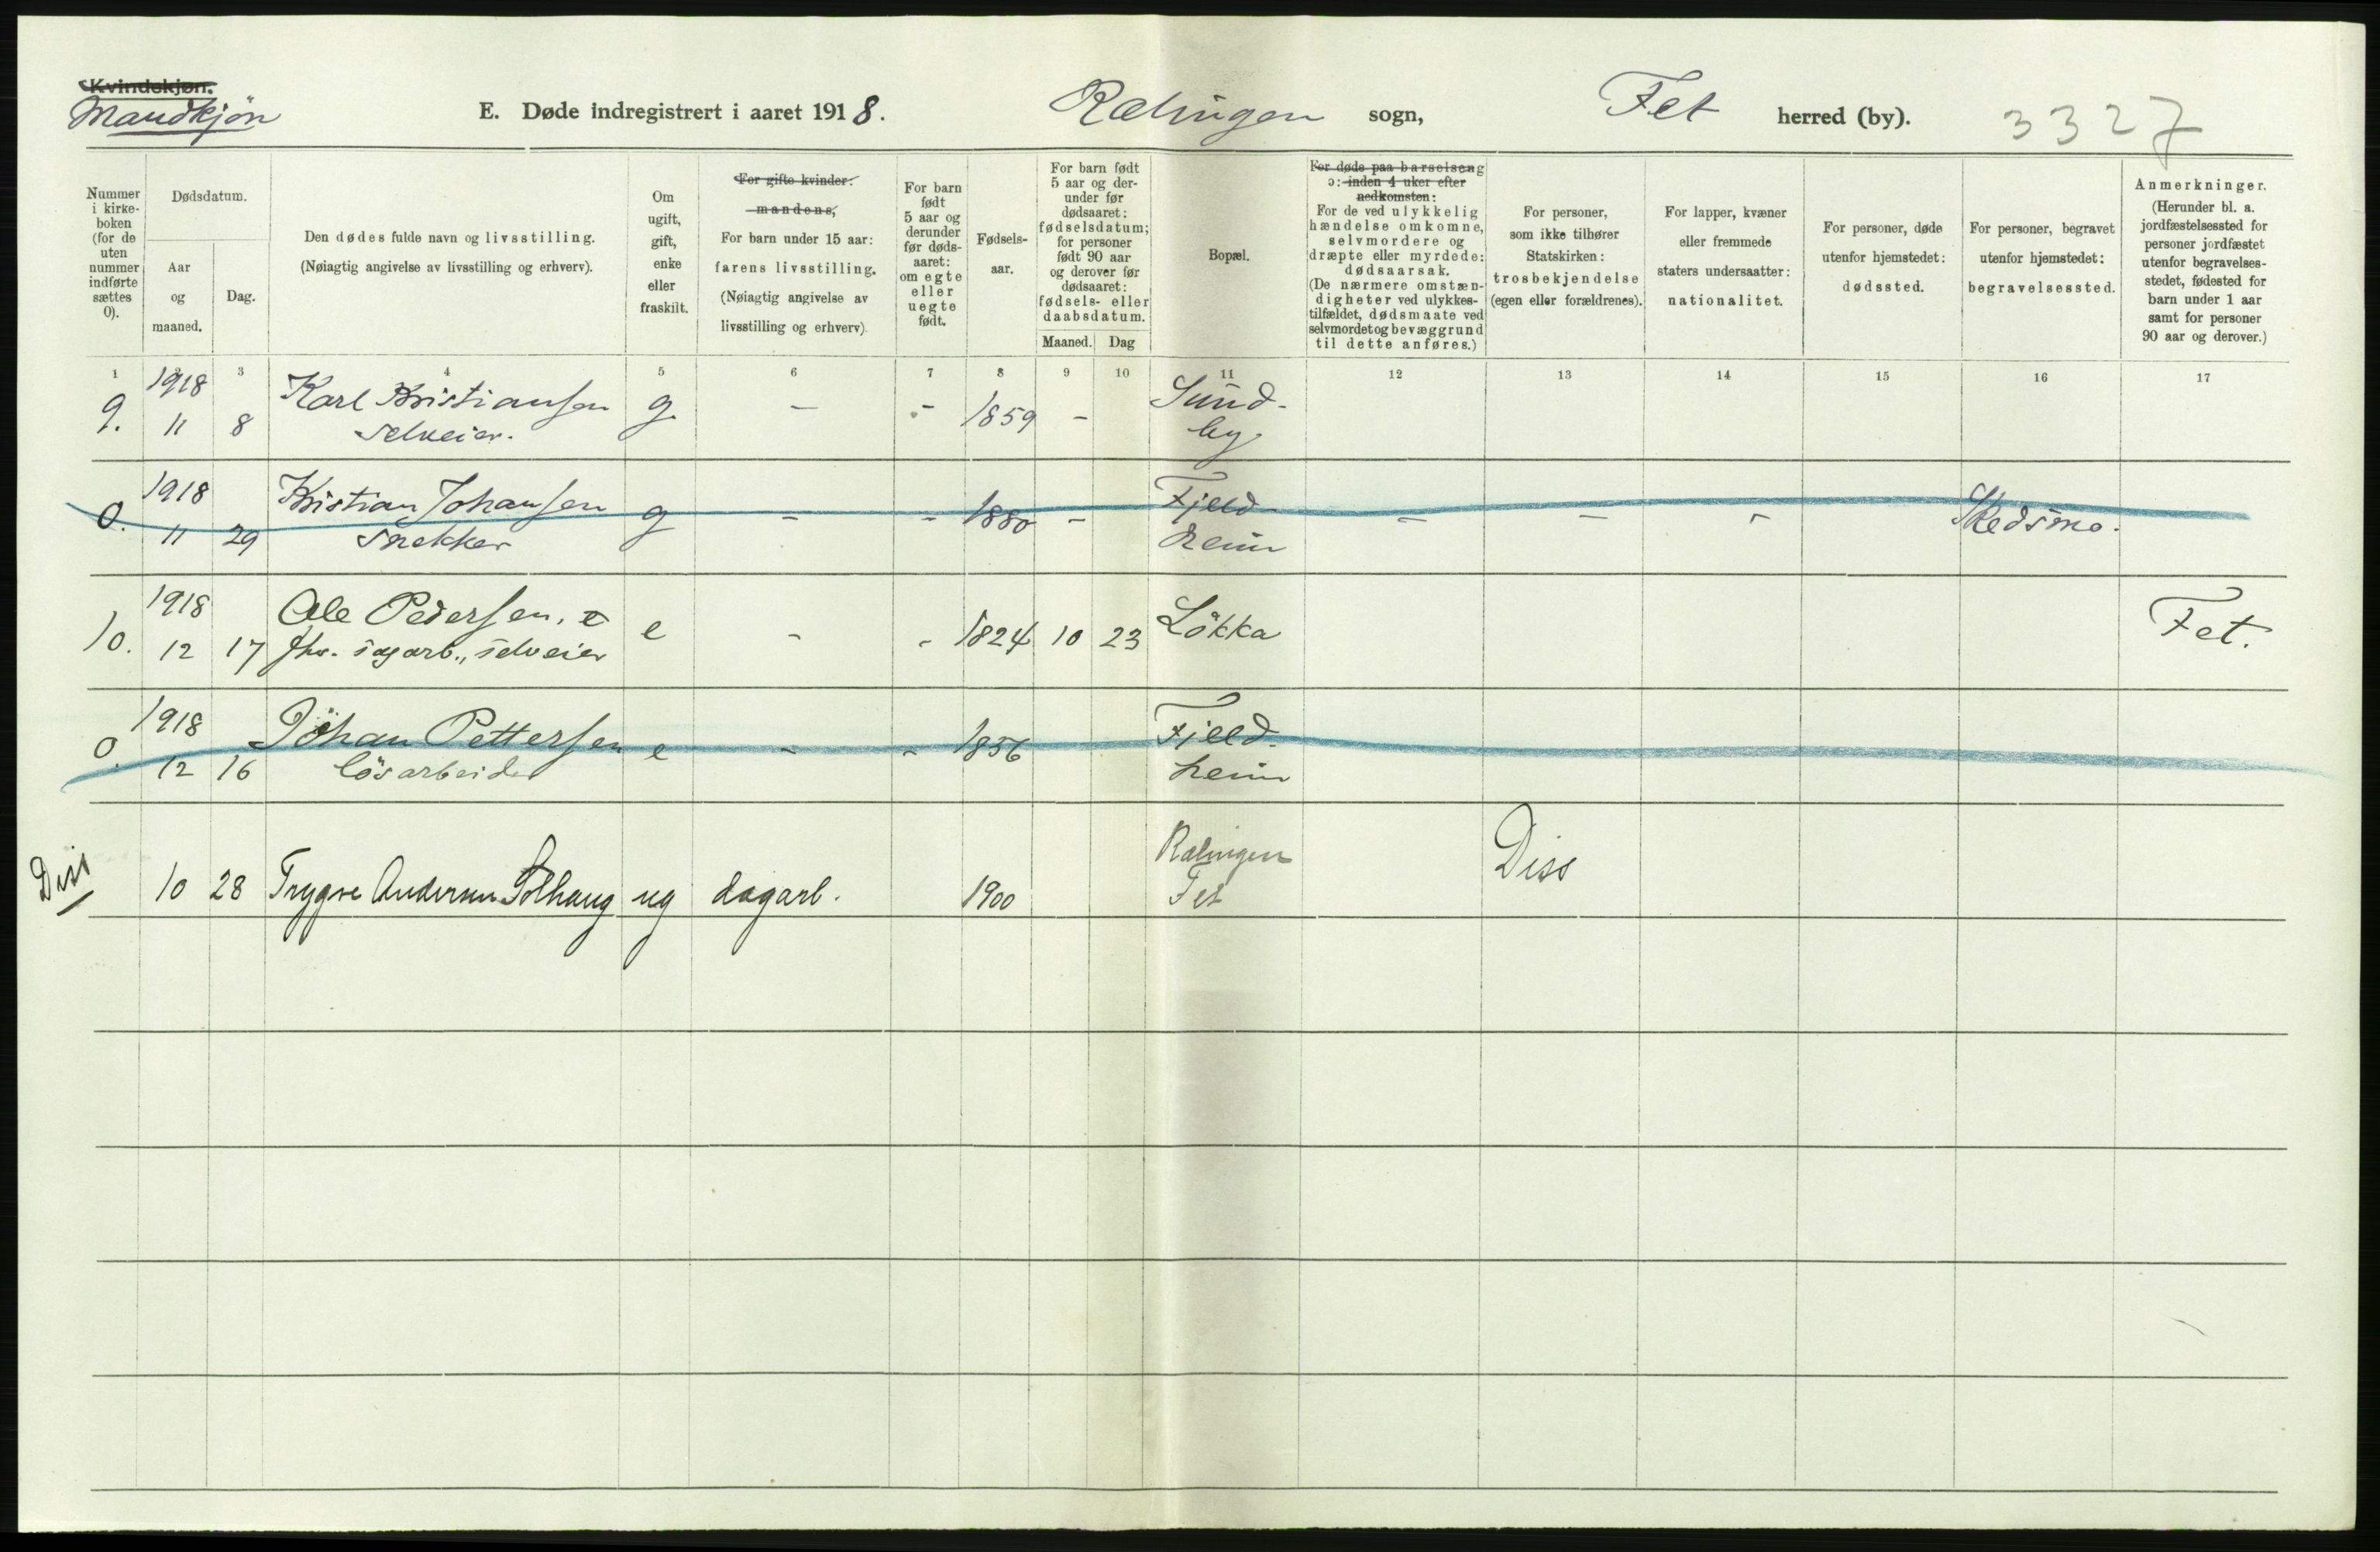 Kvindekjøn.
Mandkjön
E. Døde indregistrert i aaret 1918.
Rælingen sogn,
Fet herred (by).
3327
Nummer
i kirke-
boken
(for de
uten
nummer
indførte
sættes
0).
Dødsdatum.
Aar
og
maaned.
Dag.
Den dødes fulde navn og livsstilling.
(Nøiagtig angivelse av livsstilling og erhverv).
Om
ugift,
gift,
enke
eller
fraskilt.
For gifte kvinder:
mandens,
For barn under 15 aar:
farens livsstilling.
(Nøiagtig angivelse av
livsstilling og erhverv).
For barn
født
5 aar og
derunder
før døds-
aaret:
om egte
eller
uegte
født.
Fødsels-
aar.
For barn født
5 aar og der-
under før
dødsaaret:
fødselsdatum;
for personer
født 90 aar
og derover før
dødsaaret:
fødsels- eller
daabsdatum.
Maaned. Dag
Bopæl.
For døde paa barselseng
ɔ: inden 4 uker efter
nedkomsten:
For de ved ulykkelig
hændelse omkomne,
selvmordere og
dræpte eller myrdede:
dødsaarsak.
(De nærmere omstæn-
digheter ved ulykkes-
tilfældet, dødsmaate ved
selvmordet og bevæggrund
til dette anføres.)
For personer,
som ikke tilhører
Statskirken:
trosbekjendelse
(egen eller forældrenes).
For lapper, kvæner
eller fremmede
staters undersaatter:
nationalitet.
For personer, døde
utenfor hjemstedet:
dødssted.
For personer, begravet
utenfor hjemstedet:
begravelsessted.
Anmerkninger.
(Herunder bl. a.
jordfæstelsessted for
personer jordfæstet
utenfor begravelses-
stedet, fødested for
barn under 1 aar
samt for personer
90 aar og derover.)
1 2 3 4 5 6 7 8 9 10 11 12 13 14 15 16 17
1918 Karl Kristiansen Sund-
9. 11 8 selveier. g. – – 1859 – by
1918 Kristian Johansen Fjeld-
0. 11 29 Snekker g – – 1880 – heim – – – Skedsmo.
1918 Ole Pedersen, e
10. 12 17 fhv. sagarb., selveier e - - 1824 10 23 Lökka Fet.
1918 Johan Pettersen Fjeld-
0. 12 16 lösarbeider e - - 1856 heim
Rælingen
Diss 10 28 Trygve Andersen Solhaug ug dagarb. 1900 Fet Diss